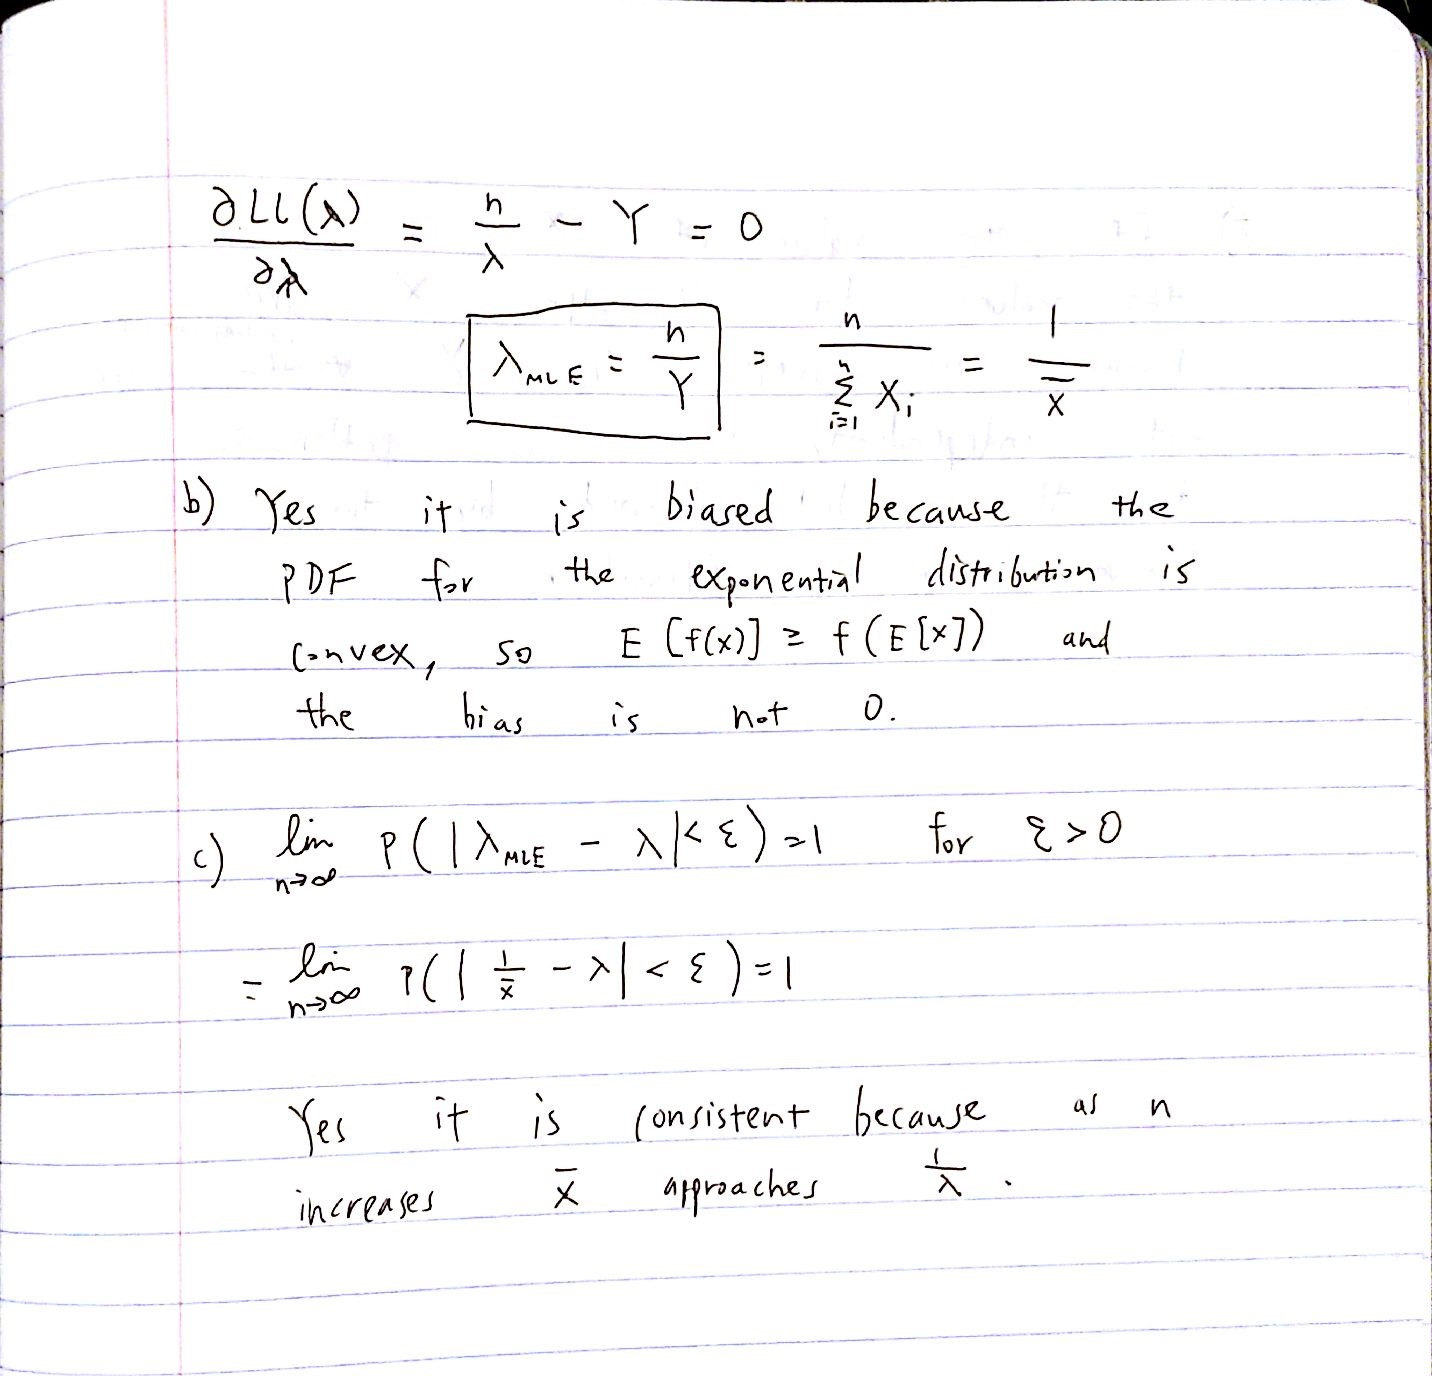 ∂LL(λ)/∂λ = n/λ - Y = 0
λ_MLE = n/Y = n/∑_{i=1}^{n} X_i = 1/x̄
b) Yes it is biased because the
PDF for the exponential distribution is
convex, so E[f(x)] ≥ f(E[x]) and
the bias is not 0.
c) lim_{n→∞} P(|λ_MLE - λ| < ε) = 1 for ε > 0
= lim_{n→∞} P(|1/x̄ - λ| < ε) = 1
Yes it is consistent because as n
increases x̄ approaches 1/λ.